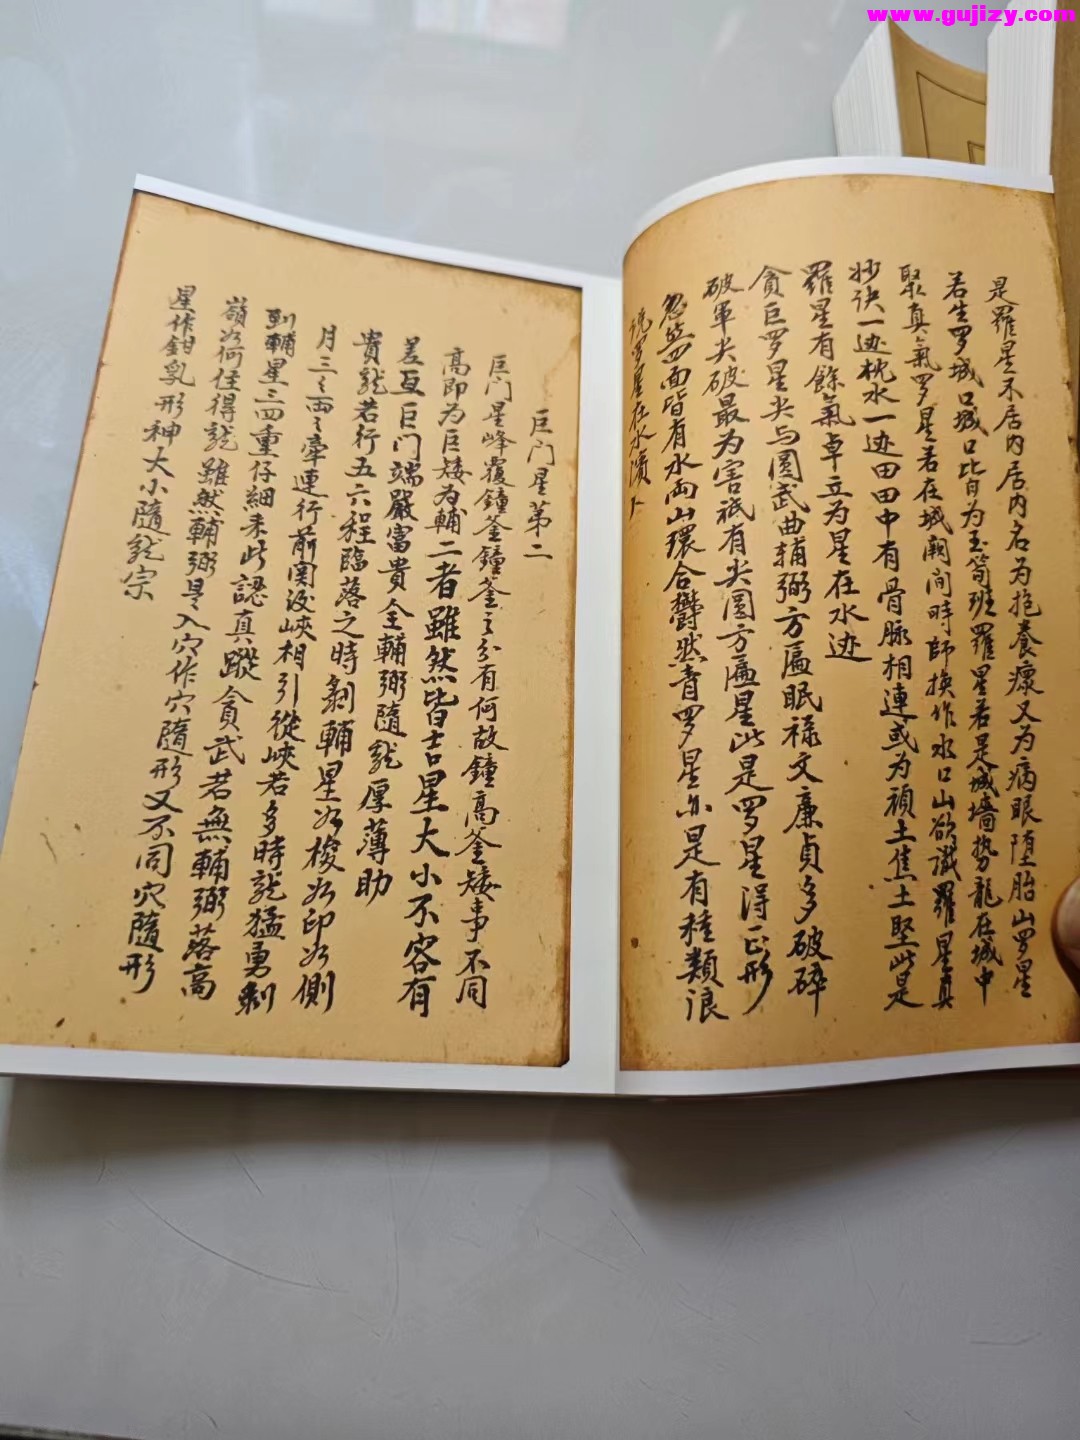 www.gujizy.com
是羅星不居内居内名为抱養瘝又为病眼堕胎山罗星
若生罗城口城口皆为玉笥班羅星若是城墙势龍在城中
聚真氣罗星若在城阙间時師换作水口山欲識羅星真
妙诀一边枕水一边田田中有骨脉相連或为頑土焦土堅此是
羅星有餘氣卓立为星在水边
貪巨罗星尖与圆武曲辅弼方匾眠禄文廉貞多破碎
破軍尖破最为害祇有尖圆方匾星此是罗星得正形
忽然四面皆有水両山環合欝然青罗星亦是有種類浪
说罗星在水濱
巨门星第二
巨门星峰覆鐘釜鐘釜之分有何故鐘高釜矮事不同
高即为巨矮为輔二者雖然皆吉星大小不容有
差互巨门端嚴富貴全輔弼隨龙厚薄助
貴龙若行五六程臨落之時剝輔星如梭如印如側
月三三両両牽連行前関後峽相引從峽若多時龙猛勇剩
到輔星三四重仔細来此認真蹤貪武若無輔弼落高
嶺如何住得龙雖然輔弼是入穴作穴隨形又不同穴隨形
星作鉗乳形神大小隨龙宗